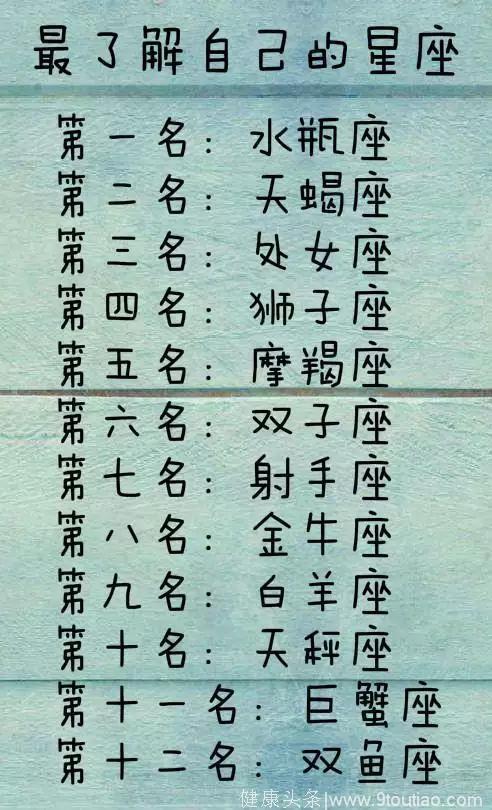 最了解自己的星座
第一名：水瓶座
第二名：天蝎座
第三名：处女座
第四名：狮子座
第五名：摩羯座
第六名：双子座
第七名：射手座
第八名：金牛座
第九名：白羊座
第十名：天秤座
第十一名：巨蟹座
第十二名：双鱼座
健康头条/www.9toutiao.com